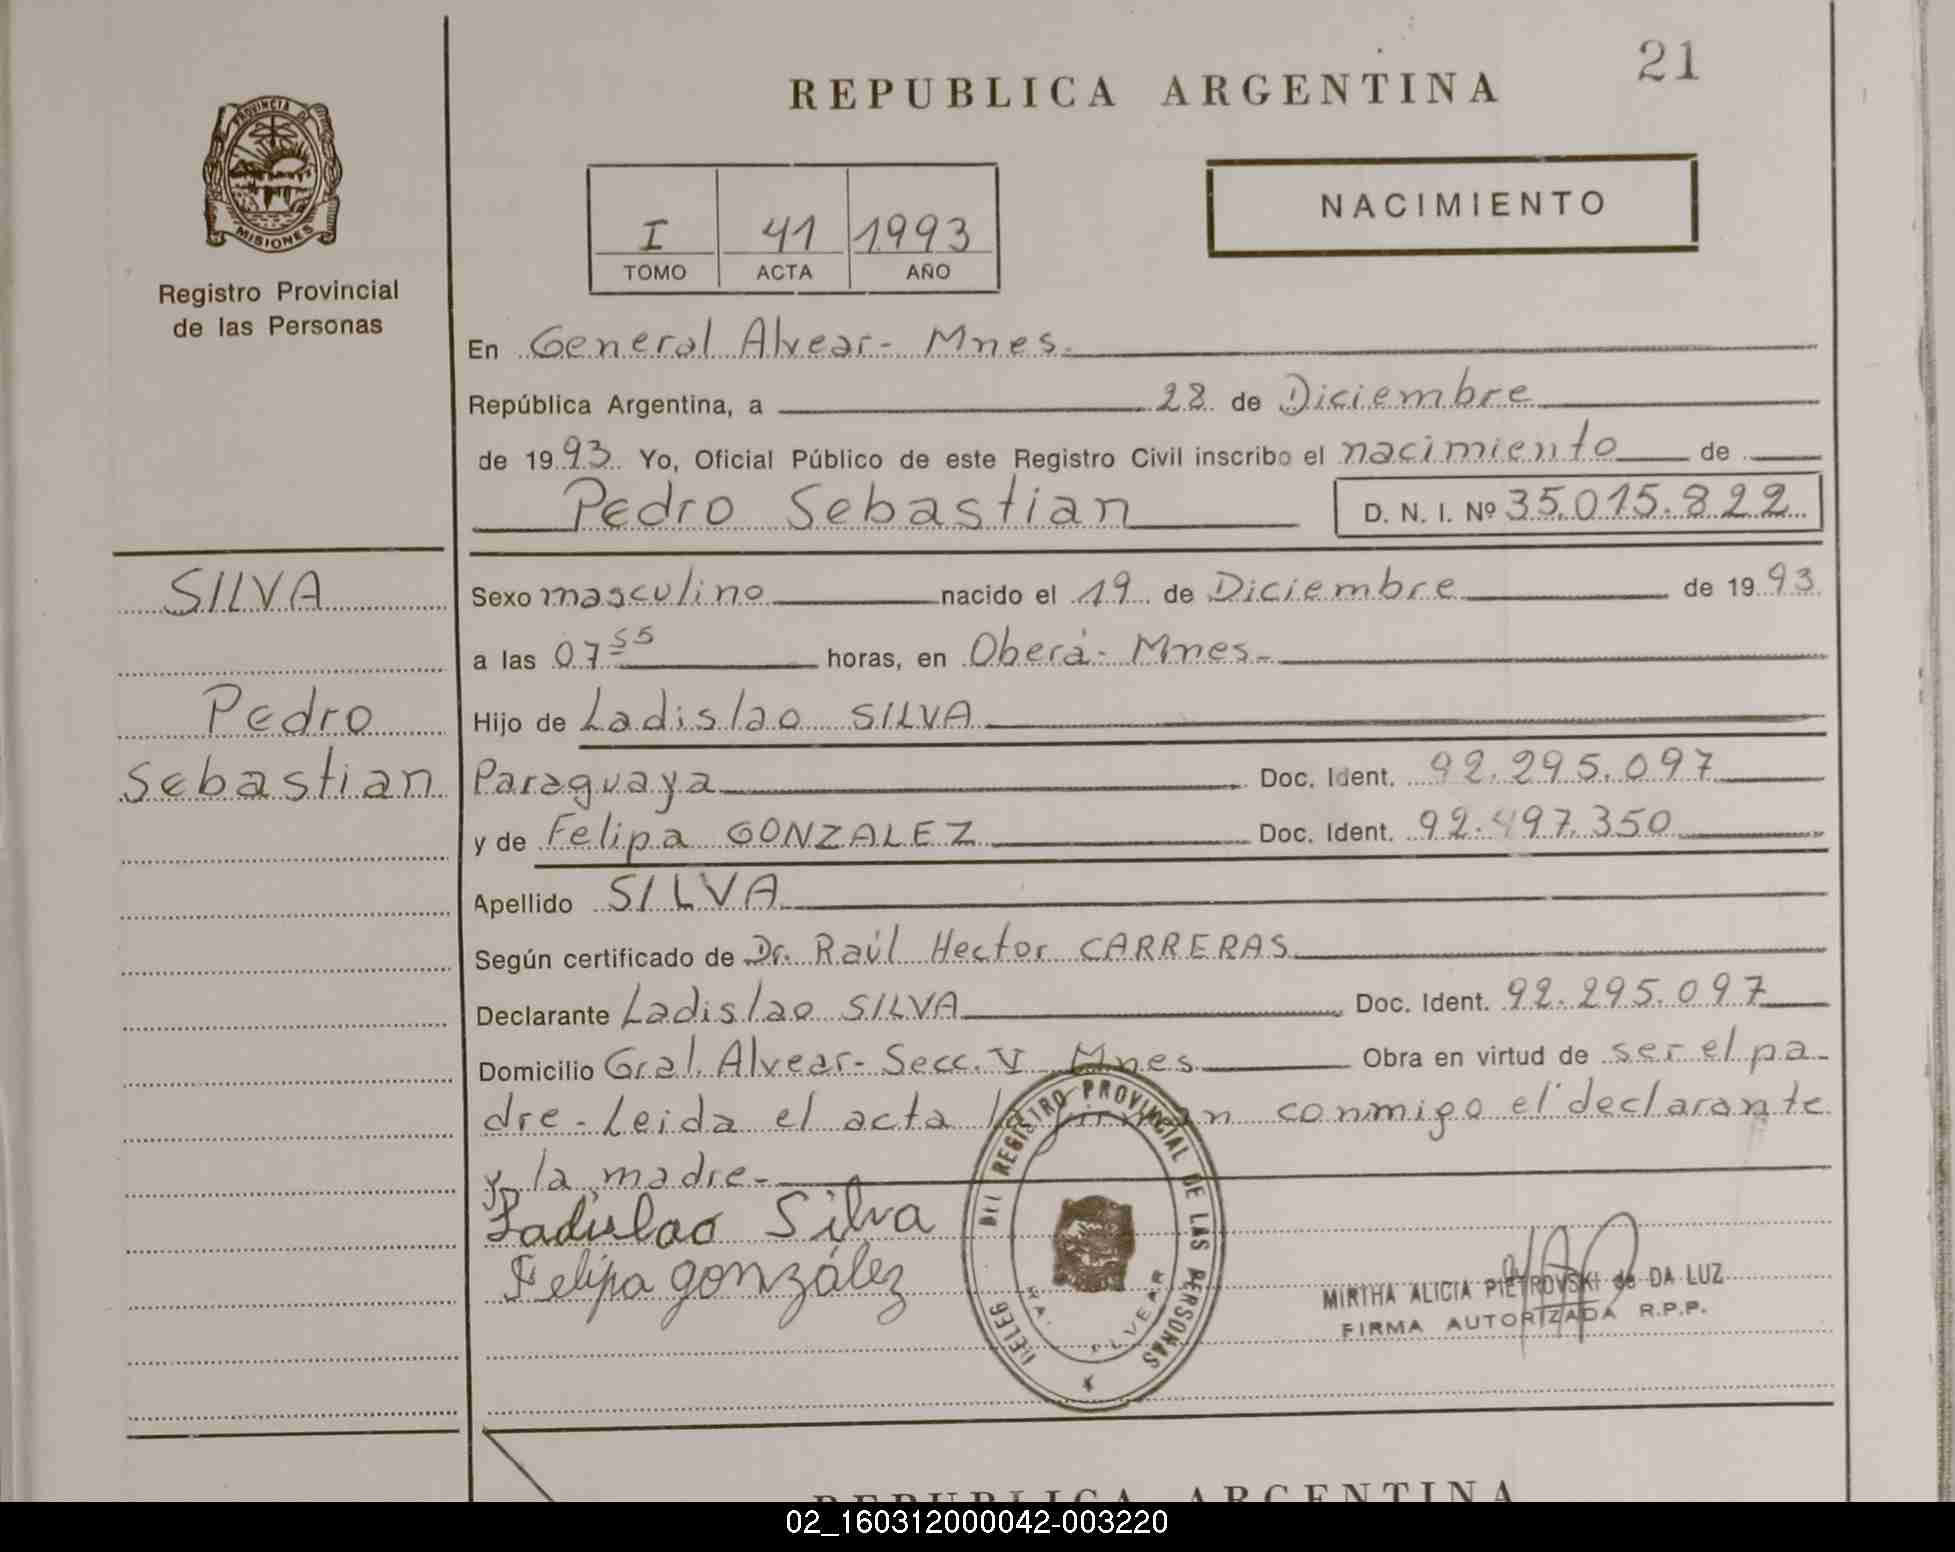 21
REPUBLICA ARGENTINA
PROVINCIA DE
MISIONES
Registro Provincial
de las Personas
I 41 1993
TOMO ACTA AÑO
NACIMIENTO
En General Alvear - Mnes.
República Argentina, a 28 de Diciembre
de 1993. Yo, Oficial Público de este Registro Civil inscribo el nacimiento de
Pedro Sebastian D. N. I. Nº 35.015.822
SILVA
Pedro
Sebastian
Sexo masculino nacido el 19 de Diciembre de 1993
a las 07 55 horas, en Oberá - Mnes -
Hijo de Ladislao SILVA
Paraguaya Doc. Ident. 92.295.097
y de Felipa GONZALEZ Doc. Ident. 92.497.350
Apellido SILVA
Según certificado de Dr. Raúl Hector CARRERAS
Declarante Ladislao SILVA Doc. Ident. 92.295.097
Domicilio Gral. Alvear - Secc. V Mnes Obra en virtud de ser el pa-
dre - Leida el acta la firman conmigo el declarante
y la madre -
Ladislao Silva
Felipa gonzález
DELEG DEL REGISTRO PROVINCIAL DE LAS PERSONAS
ALVEAR
MIRTHA ALICIA PIETROVSKI de DA LUZ
FIRMA AUTORIZADA R.P.P.
REPUBLICA ARGENTINA
02_160312000042-003220